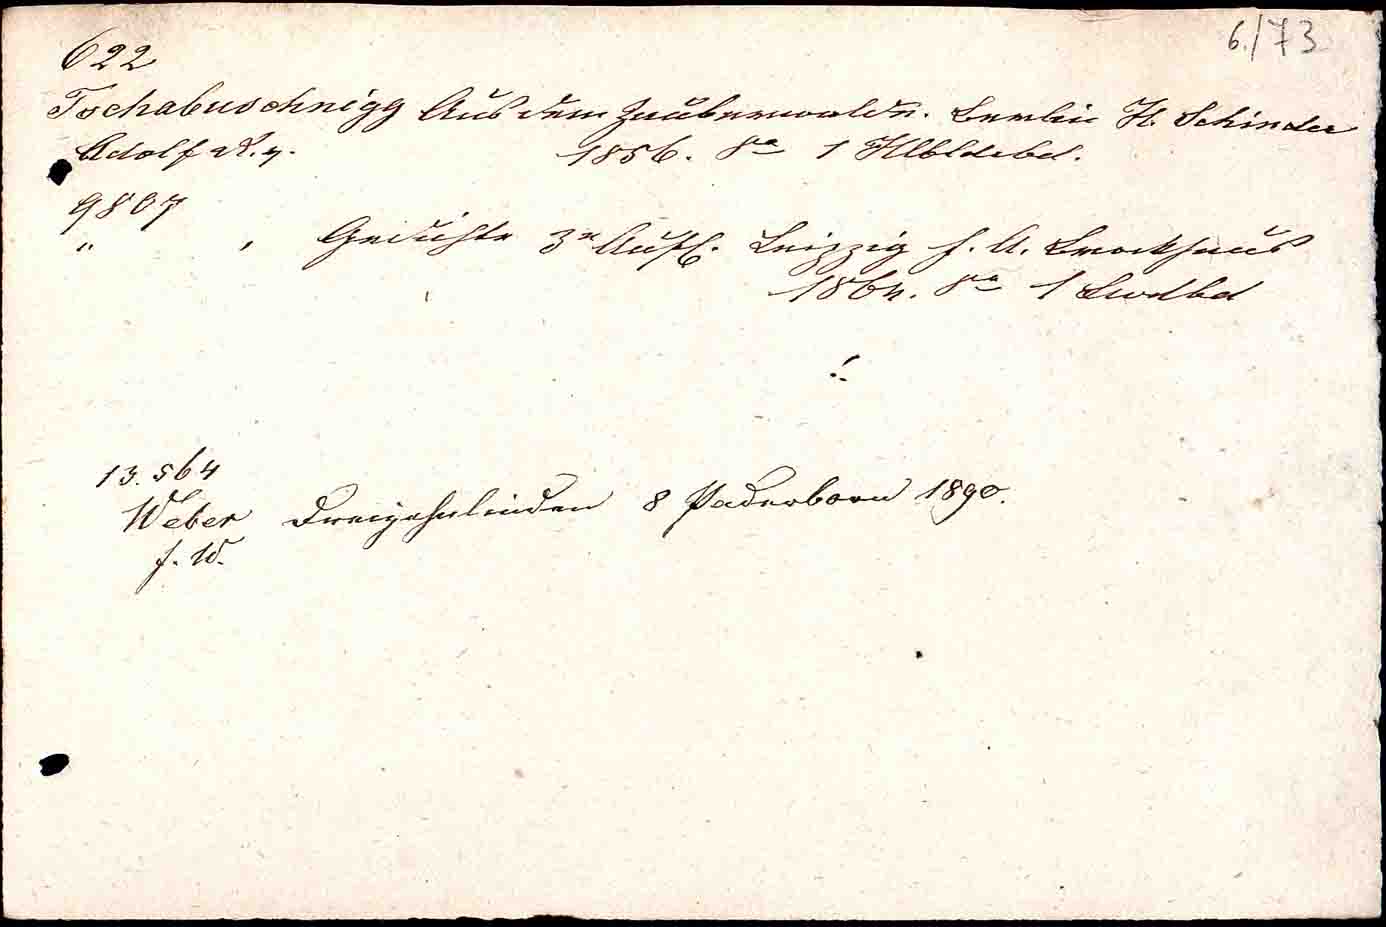 6./73
622
Tschabuschnigg Aus dem Zauberwalde. Berlin H. Schindler
Adolf R. v. 1856. 8° 1 Hlbldrbd.
9807
" " Gedichte 3e Aufl. Leipzig F. A. Brockhaus
1864. 8° 1 Lwdbd
13.564
Weber Dreizehnlinden 8 Paderborn 1890.
F. W.